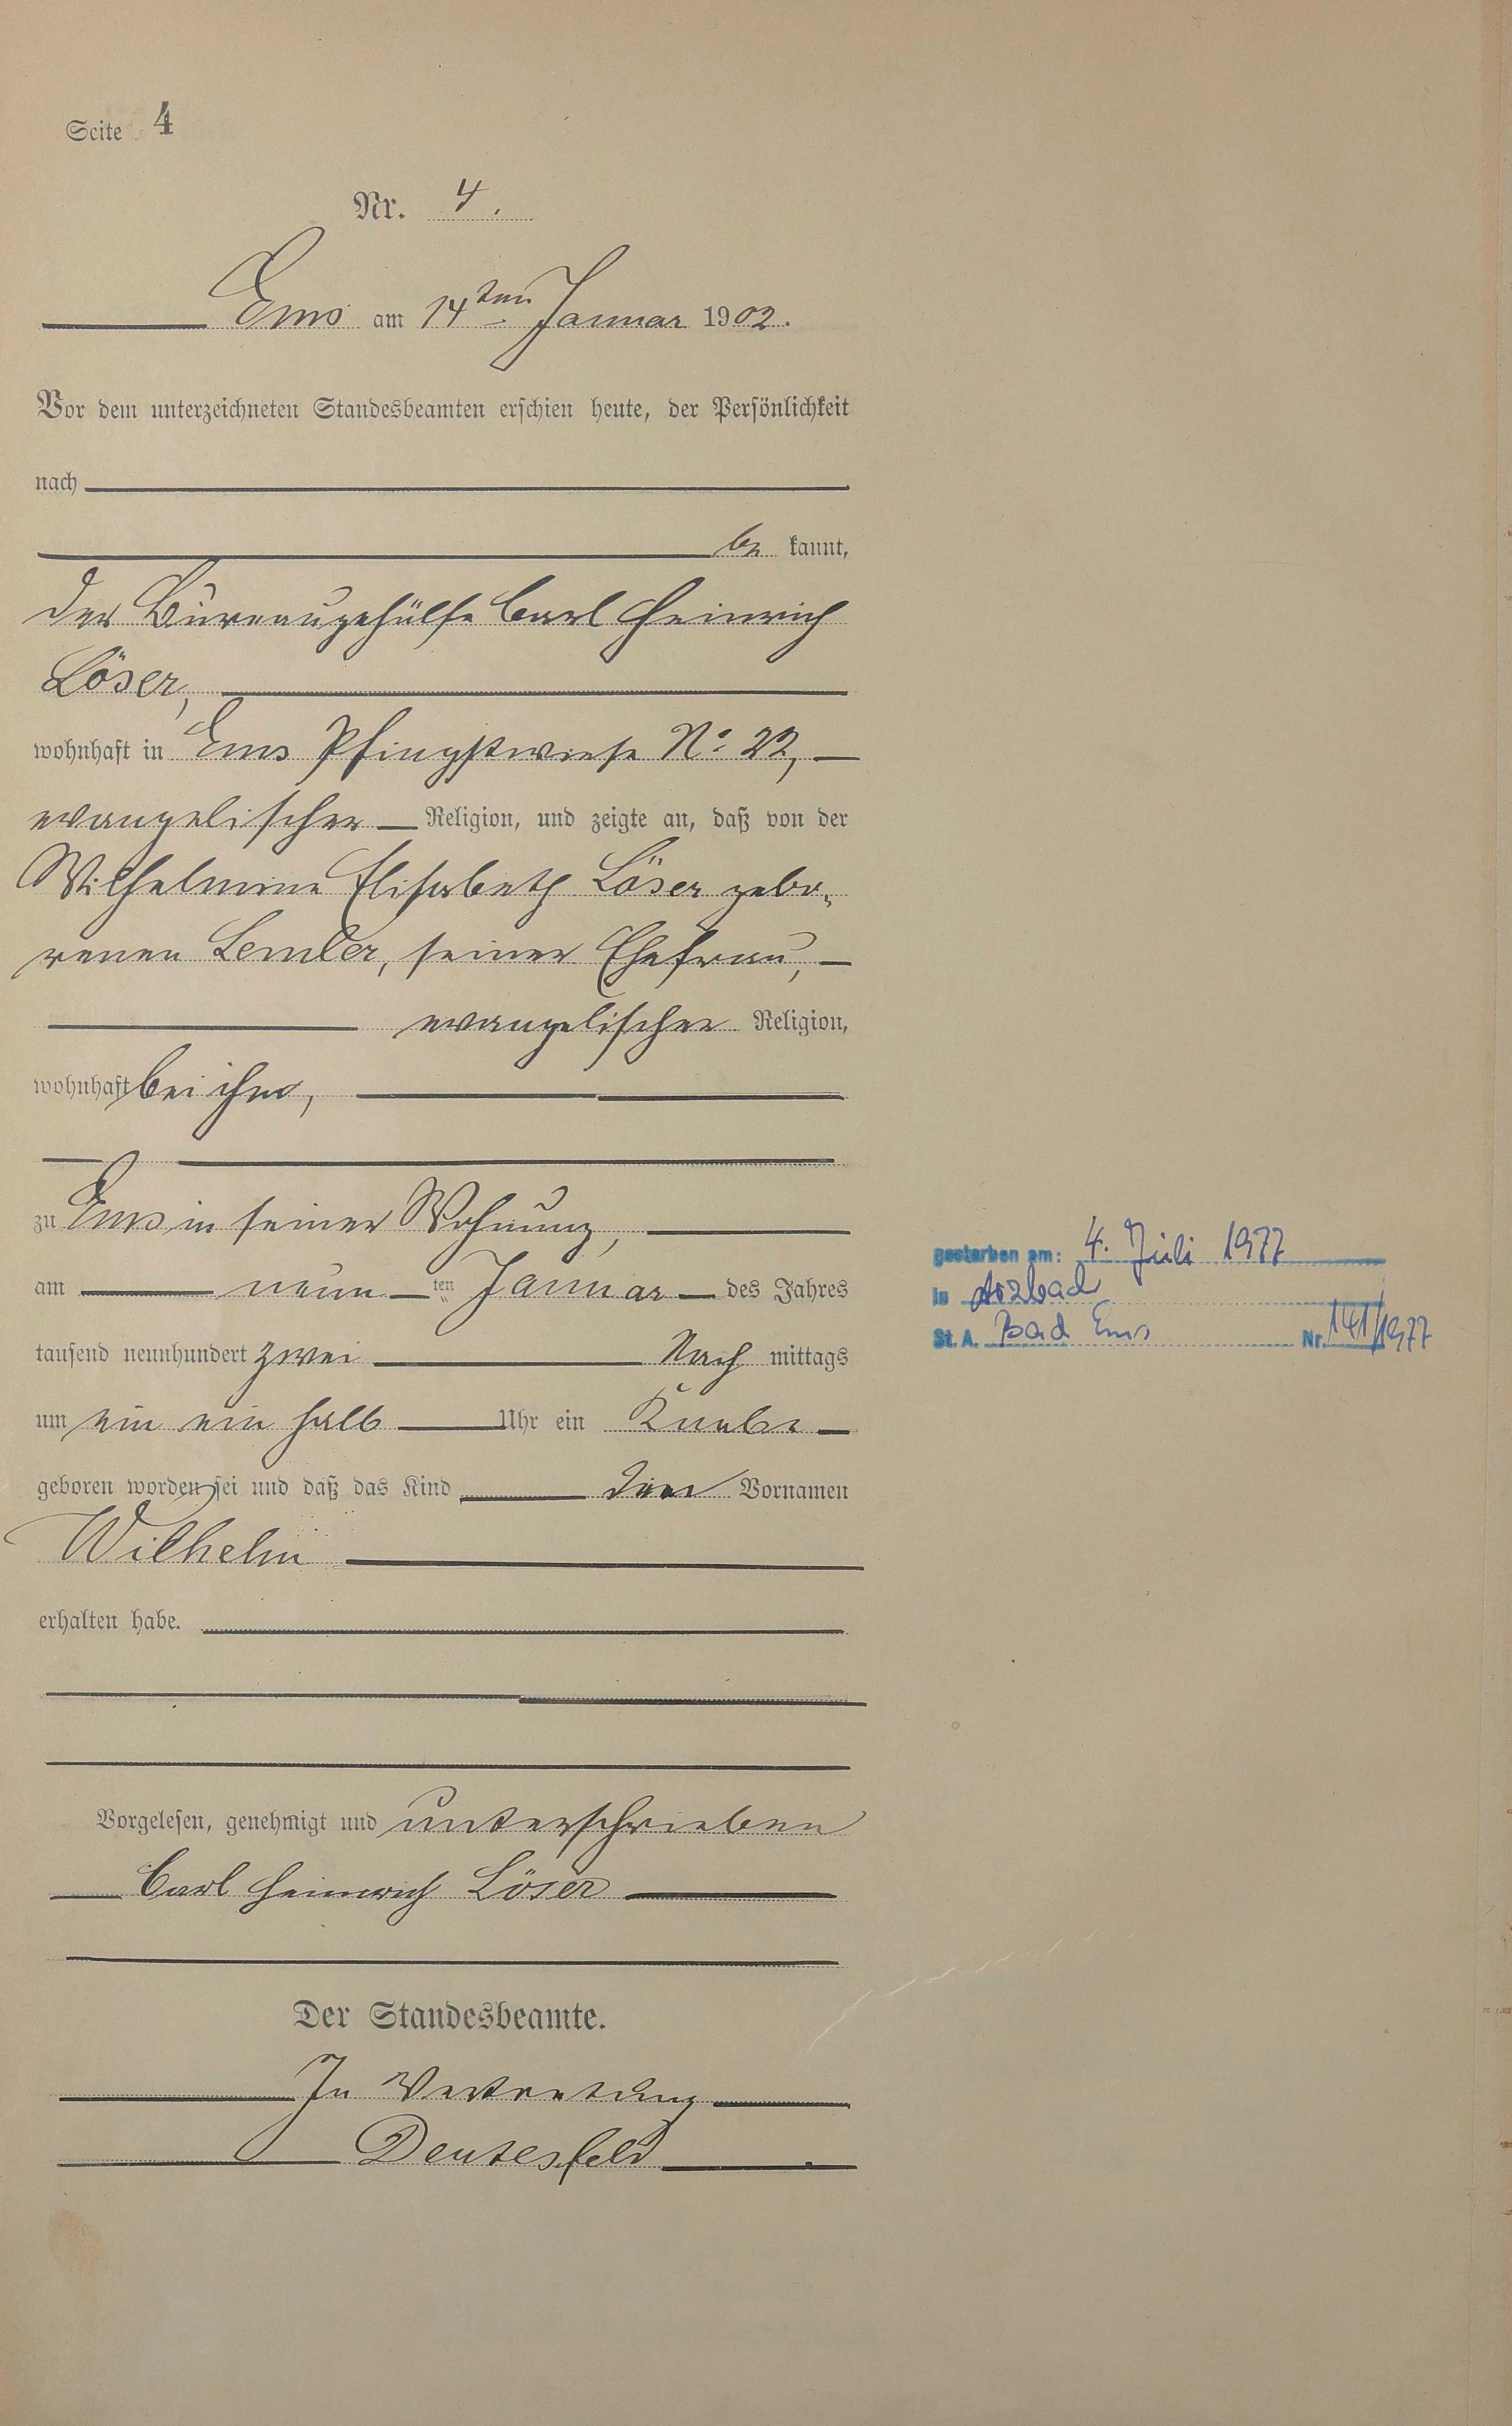 Seite 4
Nr. 4.
Ems am 14ten Januar 1902.
Vor dem unterzeichneten Standesbeamten erschien heute, der Persönlichkeit
nach
be kannt,
der Büreaugehülfe Carl Heinrich
Löser,
wohnhaft in Ems Pfingstwiese No 22,
evangelischer Religion, und zeigte an, daß von der
Wilhelmine Elisabeth Löser gebo-
renen Lemler, seiner Ehefrau,
evangelischer Religion,
wohnhaft bei ihm,
zu Ems in seiner Wohnung,
am neun ten Januar des Jahres
tausend neunhundert zwei Nach mittags
um ein ein halb Uhr ein Knabe
geboren worden sei und daß das Kind den Vornamen
Wilhelm
erhalten habe.
Vorgelesen, genehmigt und unterschrieben
Carl Heinrich Löser
Der Standesbeamte.
In Vertretung
Deutesfeld
gestorben am: 4. Juli 1977
in Arzbach
St. A. Bad Ems Nr. 141/1977